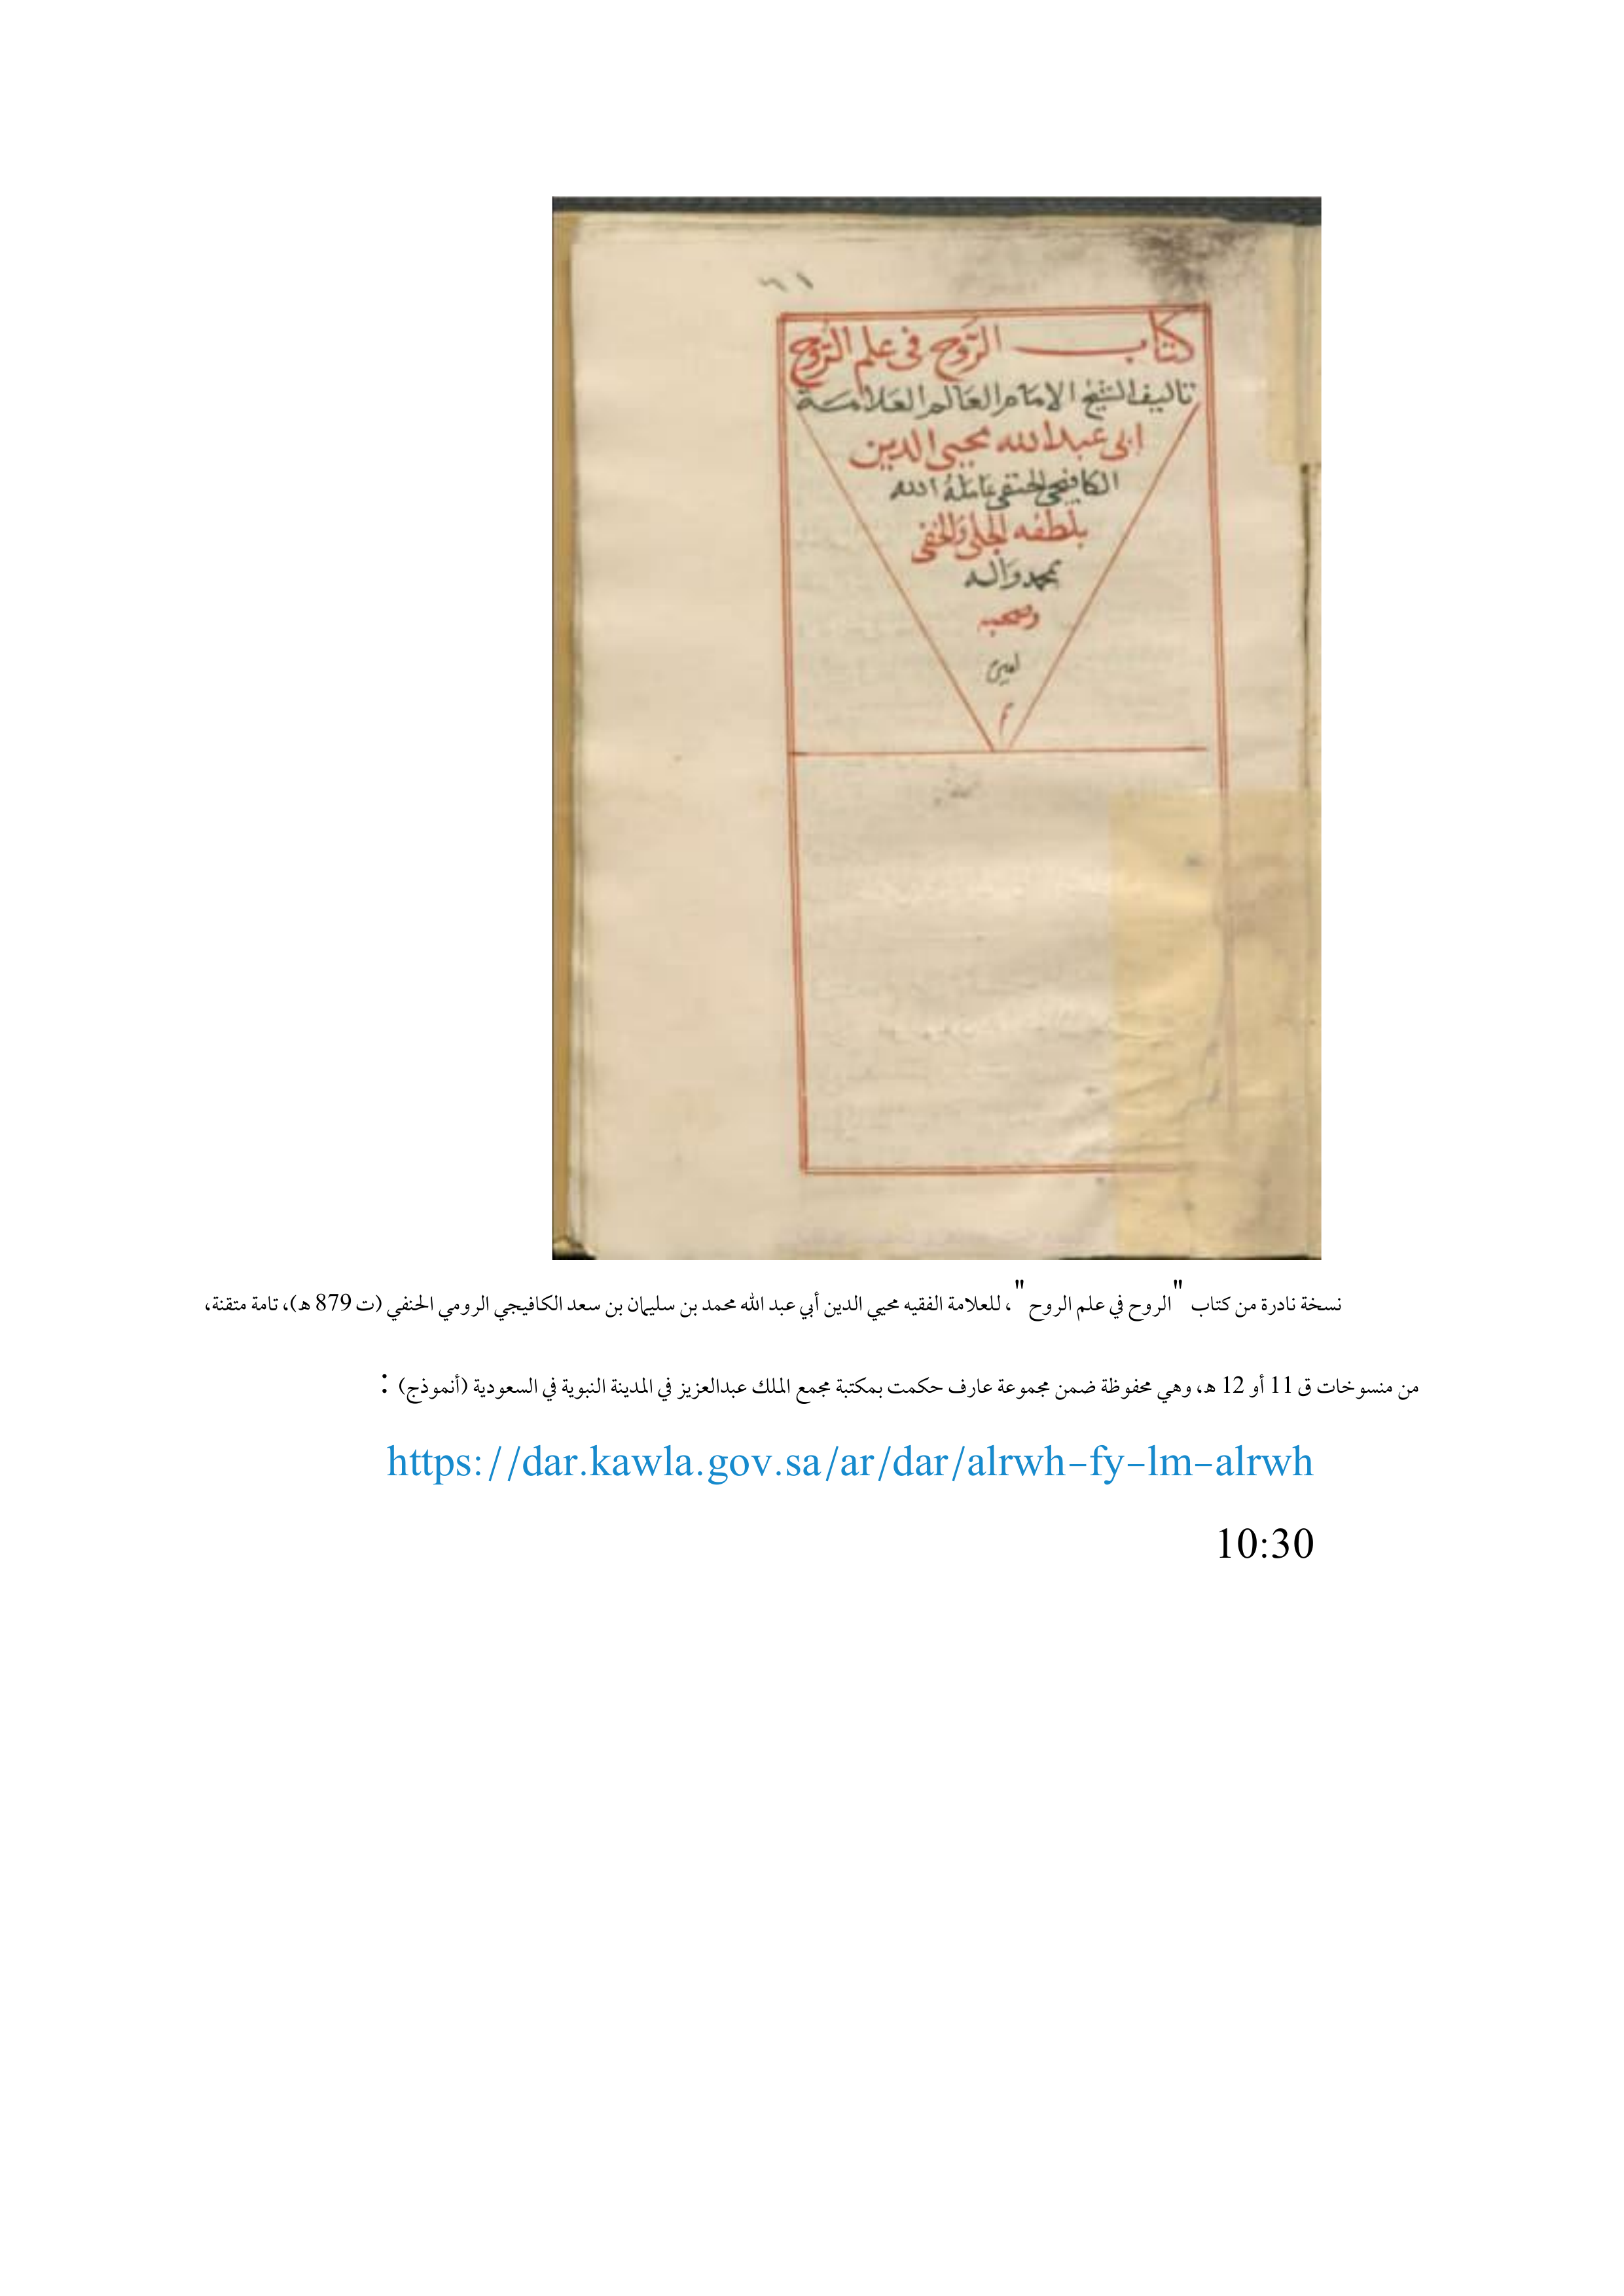 كتاب الرَّوح في علم الرُّوح
تاليف الشيخ الامام العالم العلامة
ابى عبد الله محيى الدين
الكافيجى الحنفى عامله الله
بلطفه الجلى والخفى
بمحمد واله
وصحبه
امين
م
نسخة نادرة من كتاب "الروح في علم الروح"، للعلامة الفقيه محيي الدين أبي عبد الله محمد بن سليمان بن سعد الكافيجي الرومي الحنفي (ت 879 هـ)، تامة متقنة،
من منسوخات ق 11 أو 12 هـ، وهي محفوظة ضمن مجموعة عارف حكمت بمكتبة مجمع الملك عبدالعزيز في المدينة النبوية في السعودية (أنموذج) :
https://dar.kawla.gov.sa/ar/dar/alrwh-fy-lm-alrwh
10:30